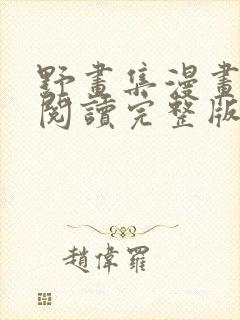 野畫集漫畫
閱讀完整版
趙偉羅